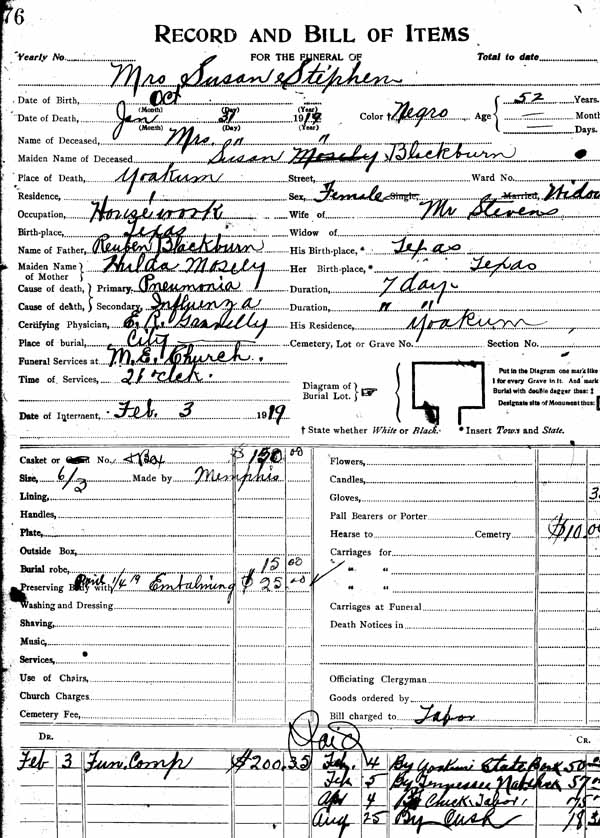 76
RECORD AND BILL OF ITEMS
Yearly No. FOR THE FUNERAL OF Total to date
Mrs Susan Stiphen
Date of Birth, Oct
(Month) (Day) (Year)
Date of Death, Jan 31 1919 Color † Negro Age 52 Years.
(Month) (Day) (Year) Month
Days.
Name of Deceased, Mrs. " "
Maiden Name of Deceased Susan Mosely Blackburn
Place of Death, Yoakum Street, Ward No.
Residence, Sex, Female Single, Married, Widow
Occupation, Housework Wife of Mr Stevens
Birth-place, Texas Widow of
Name of Father, Reuben Blackburn His Birth-place,* Texas
Maiden Name of Mother Hulda Mosely Her Birth-place,* Texas
Cause of death, Primary, Pneumonia Duration, 7 days
Cause of death, Secondary, Influenza Duration, " "
Certifying Physician, His Residence, Yoakum
Place of burial, City Cemetery, Lot or Grave No. Section No.
Funeral Services at M.E. Church.
Time of Services, 2 o'clck.
Date of Interment, Feb. 3 1919
Diagram of Burial Lot.
Put in the Diagram one mark like
1 for every Grave in it. And mark
Burial with double dagger thus: ‡
Designate site of Monument thus:
† State whether White or Black. * Insert Town and State.
Casket or No. & Box $ 150 00
Size, 6/3 Made by Memphis
Lining,
Handles,
Plate,
Outside Box,
Burial robe, 15 00
Preserving Body with Embalming $ 25.00
Washing and Dressing
Shaving,
Music,
Services,
Use of Chairs,
Church Charges
Cemetery Fee,
Flowers,
Candles,
Gloves,
Pall Bearers or Porter
Hearse to Cemetry $10.00
Carriages for
" "
" "
Carriages at Funeral
Death Notices in
Officiating Clergyman
Goods ordered by
Bill charged to Tabor
DR. Paid CR.
Feb 3 Fun. Comp $200.35 Feb. 4 By Yoakum State Bank 50
Feb 5 By Tennessee 57
Apr 4 By Check Tabor, 75
Aug 25 By Cash 18